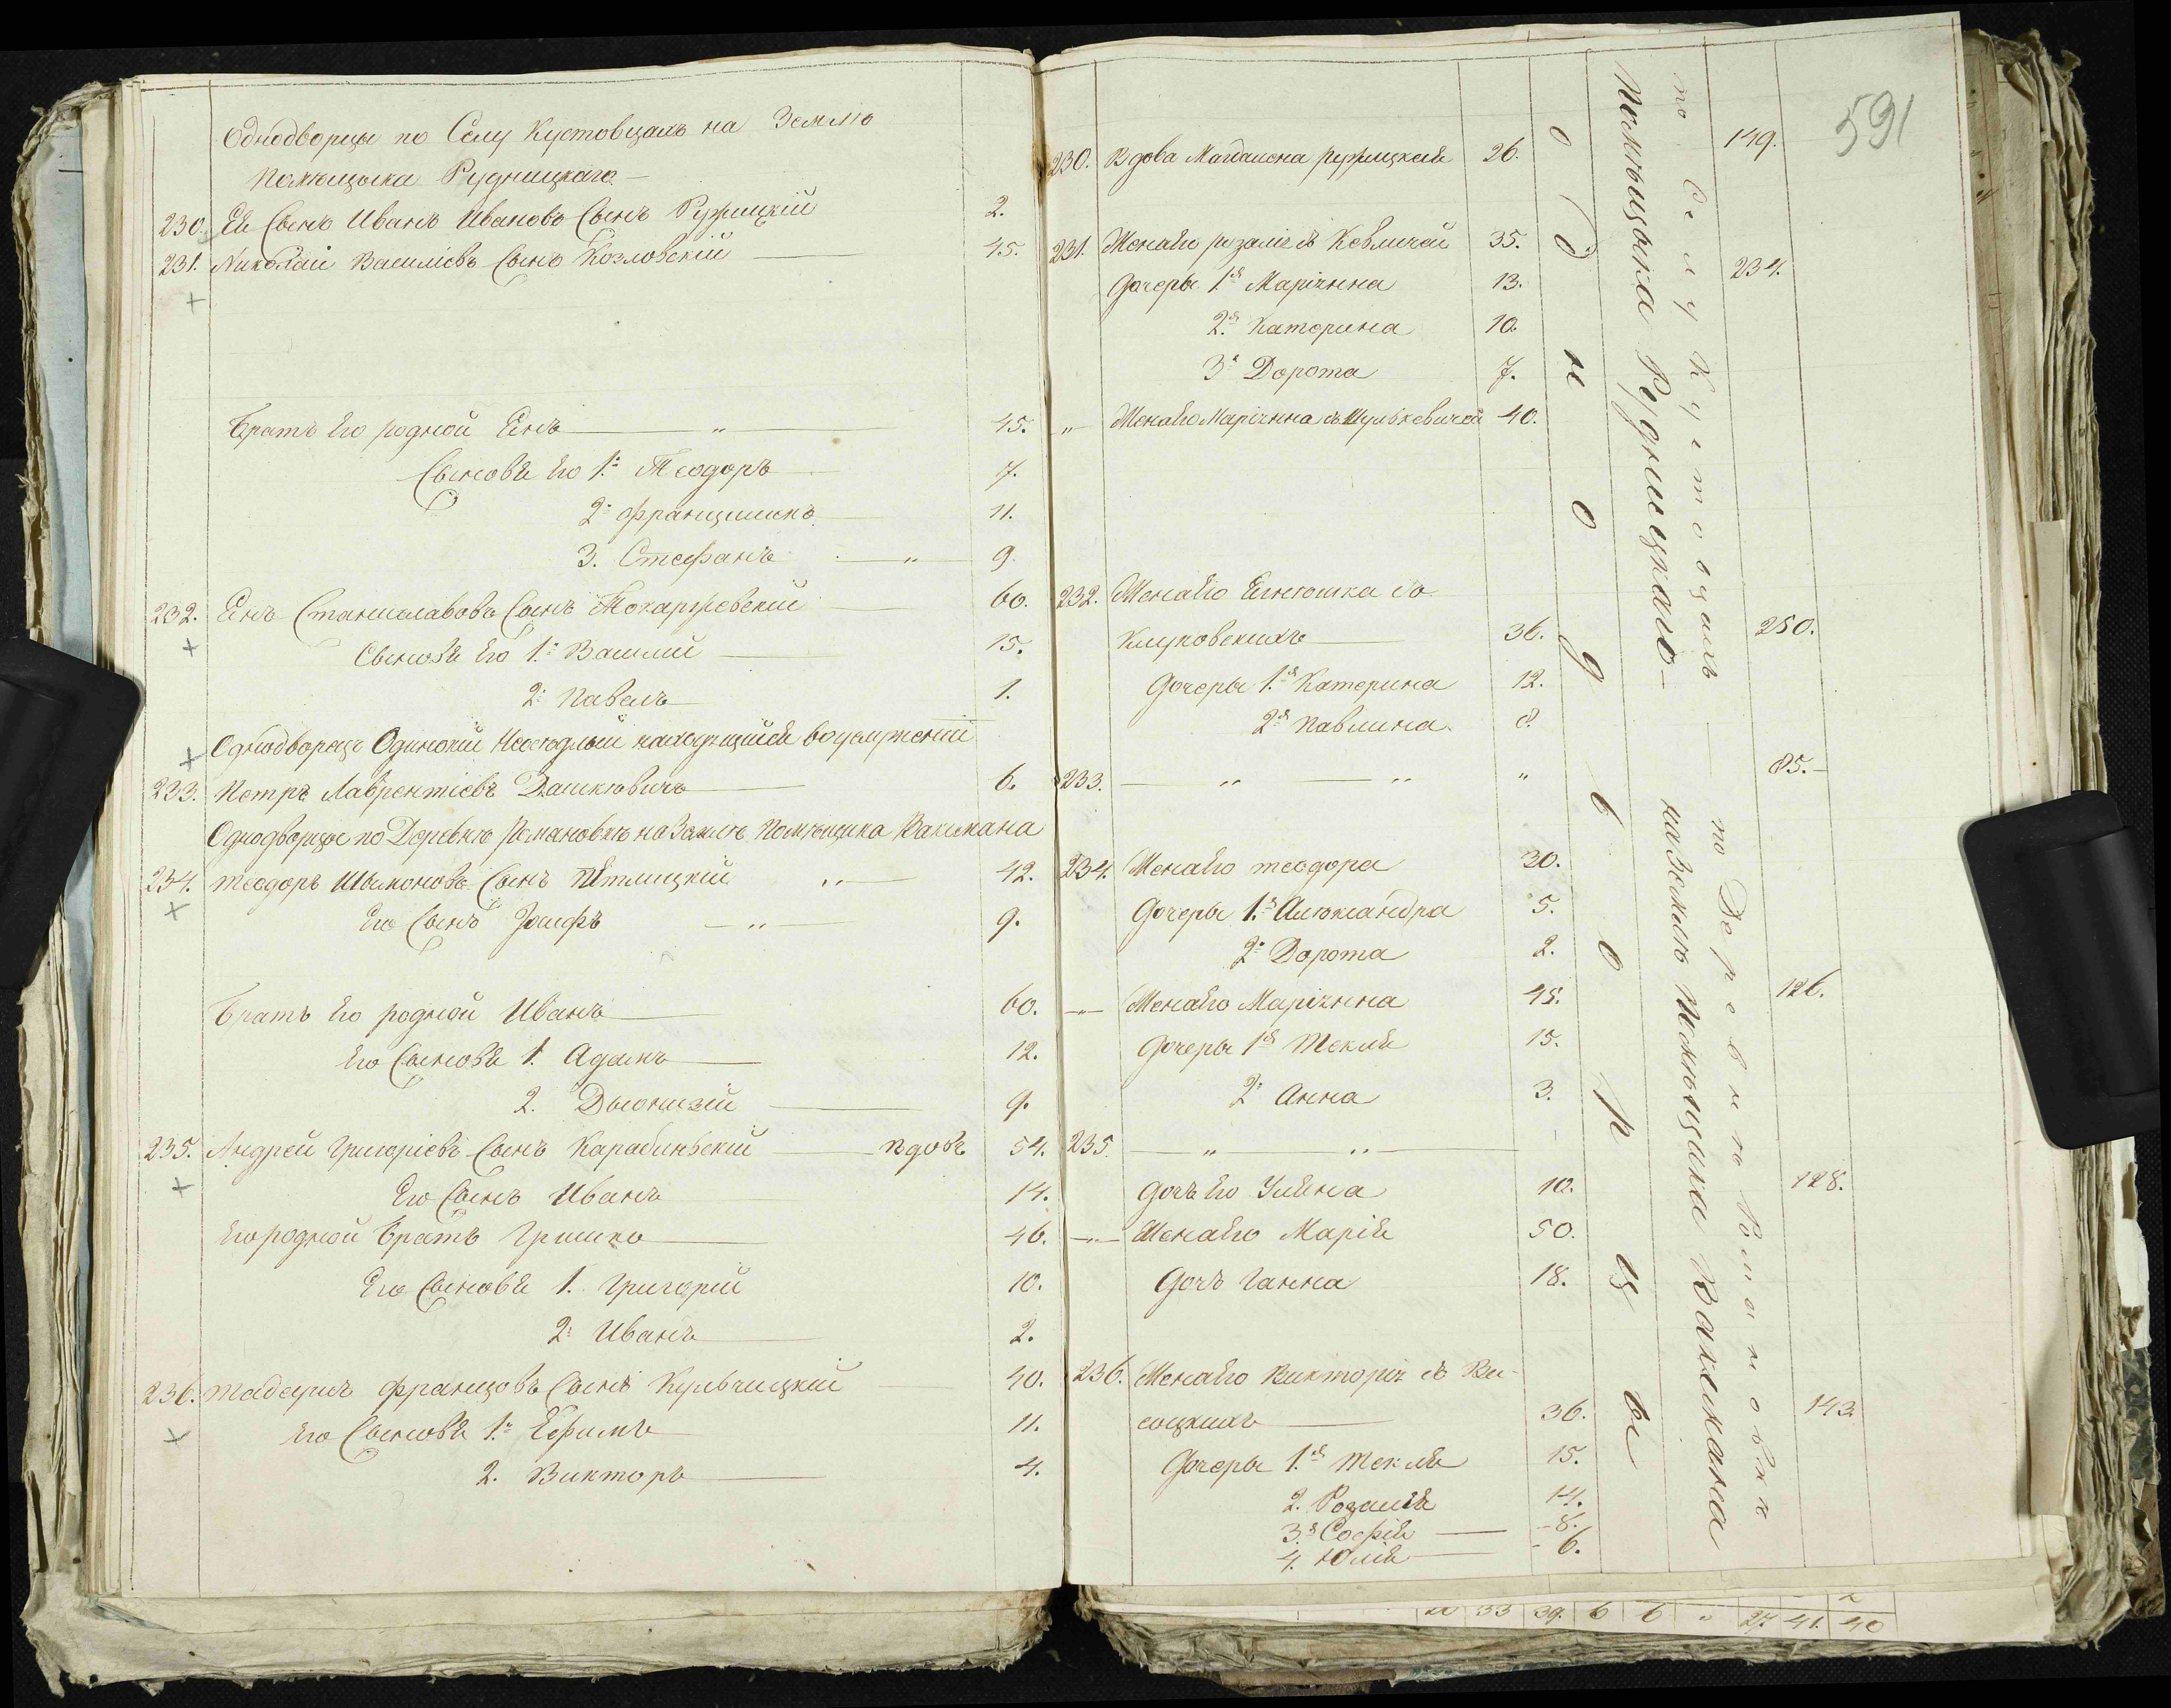 Однодворцы по Селу Кустовцамъ на Землѣ
Помѣщыка Рудницкаго
230. Ея Сынъ Иванъ Ивановъ Сынъ Ружицкій 2.
231. Николай Василіевъ Сынъ Козловскій 45.
Братъ Его родной Янъ 45.
Сыновя Его 1й Теодоръ 7.
2й Францишекъ 11.
3. Стефанъ 9.
232. Янъ Станиславовъ Сынъ Токаржевскій 60.
Сыновя Его 1й Василій 15.
2й Павелъ 1.
Однодворецъ Одинокій Неосѣдлый находящійся воуслуженіи
233. Петръ Лаврентіевъ Дашкевичъ 6.
Однодворцы по Деревнѣ Романовкѣ на Землѣ Помѣщика Вакмана
234. Теодоръ Сынъ 42.
Его Сынъ Іосифъ 9.
Братъ Его родной Иванъ 60.
Его Сыновя 1. Адамъ 12.
2. Дыонизій 9.
235. Андрей Григоріевъ Сынъ Карабиньскій вдовъ 54.
Его Сынъ Иванъ 14.
Его родной Братъ Гришко 46.
Его Сыновя 1. Григорій 10.
2й Иванъ 2.
236. Тадеушъ Францовъ Сынъ Кульчицкій 40.
Его Сыновя 1й Ефимъ 11.
2. Викторъ 4.
591
230. Вдова Магдалена Ружицкая 26. 149.
231. Жена Его Розалія зъ 35. 234.
Дочеры 1я Маріянна 13.
2я Катерина 10.
3я Дорота 7.
„ Жена Его Маріянна зъ Шулькевичей 40.
232. Жена Его Ягнешка зъ
Клуковскихъ 36. 250.
Дочеры 1я Катерина 12.
2я Павлина 8.
233. „ „ „ 85.
234. Жена Его Теодора 30.
Дочеры 1я Александра 5.
2я Дорота 2.
Жена Его Маріянна 45. 126.
Дочеры 1я Текля 15.
2я Анна 3.
235. „ „
Дочъ Его Уляна 10. 128.
Жена Его Марія 50.
Дочъ Ганна 18.
236. Жена Его Викторія зъ Вы-
соцкихъ 36. 143.
Дочеры 1я Текля 15.
2. Розалія 14.
3я Софія 8.
4. Юлія 6.
Однодворцы
по Селу Кустовцамъ
Помѣщыка Рудницкаго
по Деревнѣ Романовкѣ
на Землѣ Помѣщика Вакмана
33 39. 6 6 „ 27. 41. 40